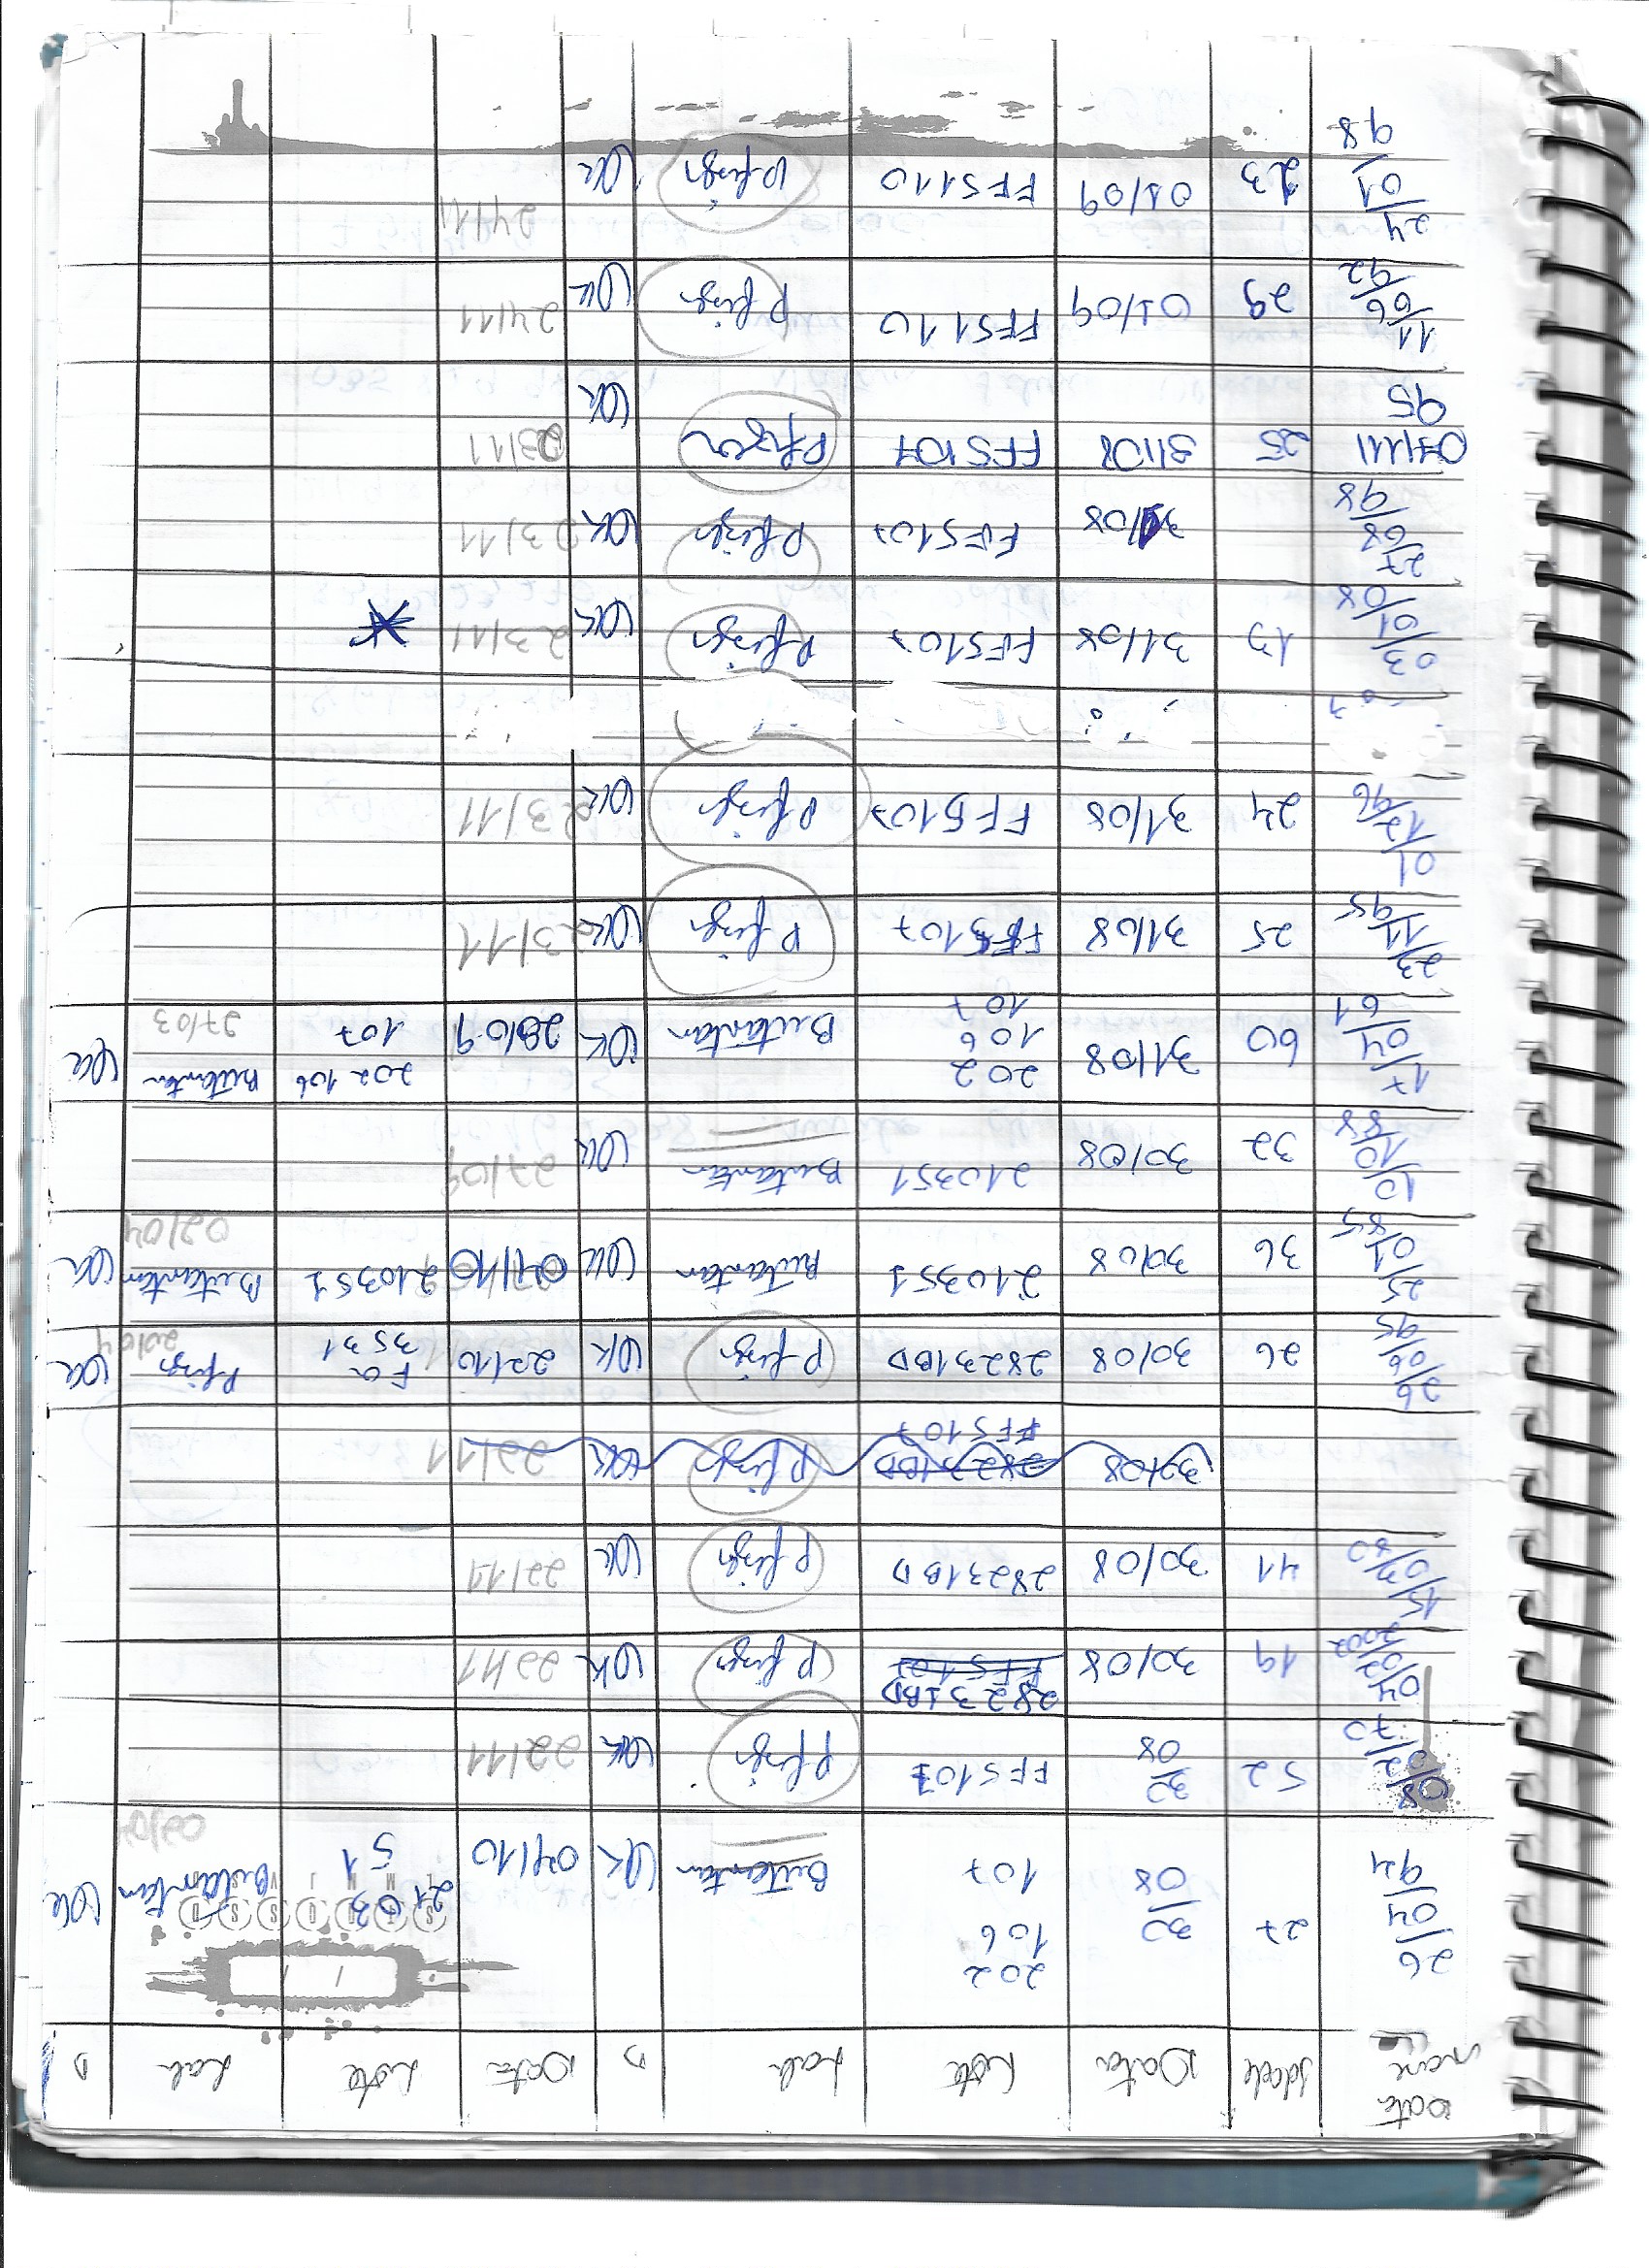 Data nasc Idade Data Lote Lab D Data Lote Lab D
26/04/94 27 30/08 202 106 107 Butantan OK 04/10 210351 Butantan OK
08/02/70 52 30/08 FF5107 Pfizer OK 22/11
04/02/2002 19 30/08 28231BD Pfizer OK 22/11
41 30/08 28231BD Pfizer OK 22/11
30/08 28231BD FF5107 Pfizer OK 22/11
26/06/95 26 30/08 28231BD Pfizer OK 22/10 Fa 3531 Pfizer OK 20/04
25/01/85 36 30/08 210351 Butantan OK 210351 Butantan OK 02/04
10/10/88 32 30/08 210351 Butantan OK 27/09
17/04/61 60 31/08 202 106 107 Butantan OK 28/09 202 106 107 Butantan OK 27/03
23/11/95 25 31/08 FF5107 Pfizer OK 23/11
01/12/96 24 31/08 FF5107 Pfizer OK 23/11
03/01/08 13 31/08 FF5107 Pfizer OK 23/11
27/08/98 31/08 FF5107 Pfizer OK 23/11
07/11/95 25 31/08 FF5107 Pfizer OK 23/11
11/06/92 29 01/09 FF5110 Pfizer OK 24/11
24/01/98 23 01/09 FF5110 Pfizer OK 24/11